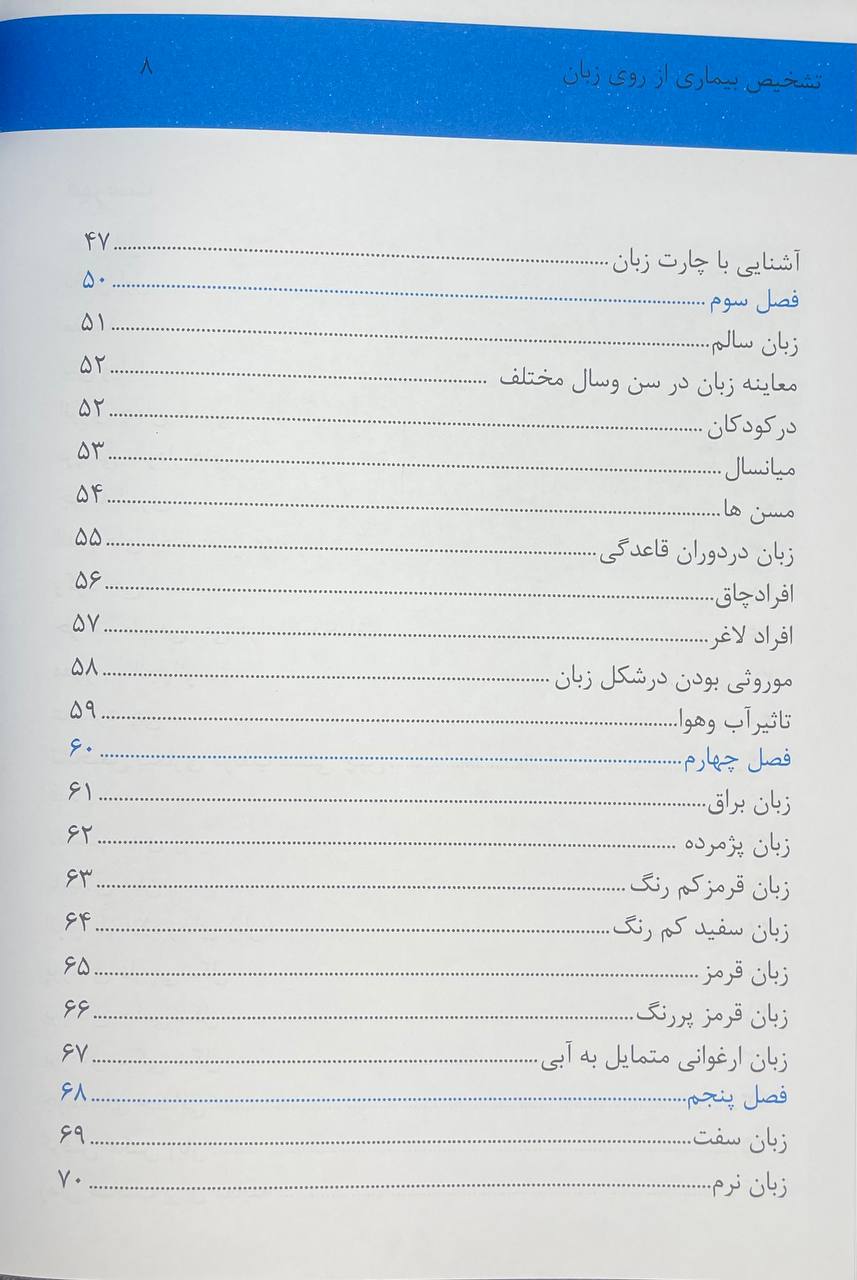 تشخیص بیماری از روی زبان ۸
آشنایی با چارت زبان ........ ۴۷
فصل سوم ........ ۵۰
زبان سالم ........ ۵۱
معاینه زبان در سن وسال مختلف ........ ۵۲
درکودکان ........ ۵۲
میانسال ........ ۵۳
مسن ها ........ ۵۴
زبان دردوران قاعدگی ........ ۵۵
افرادچاق ........ ۵۶
افراد لاغر ........ ۵۷
موروثی بودن درشکل زبان ........ ۵۸
تاثیرآب وهوا ........ ۵۹
فصل چهارم ........ ۶۰
زبان براق ........ ۶۱
زبان پژمرده ........ ۶۲
زبان قرمزکم رنگ ........ ۶۳
زبان سفید کم رنگ ........ ۶۴
زبان قرمز ........ ۶۵
زبان قرمز پررنگ ........ ۶۶
زبان ارغوانی متمایل به آبی ........ ۶۷
فصل پنجم ........ ۶۸
زبان سفت ........ ۶۹
زبان نرم ........ ۷۰